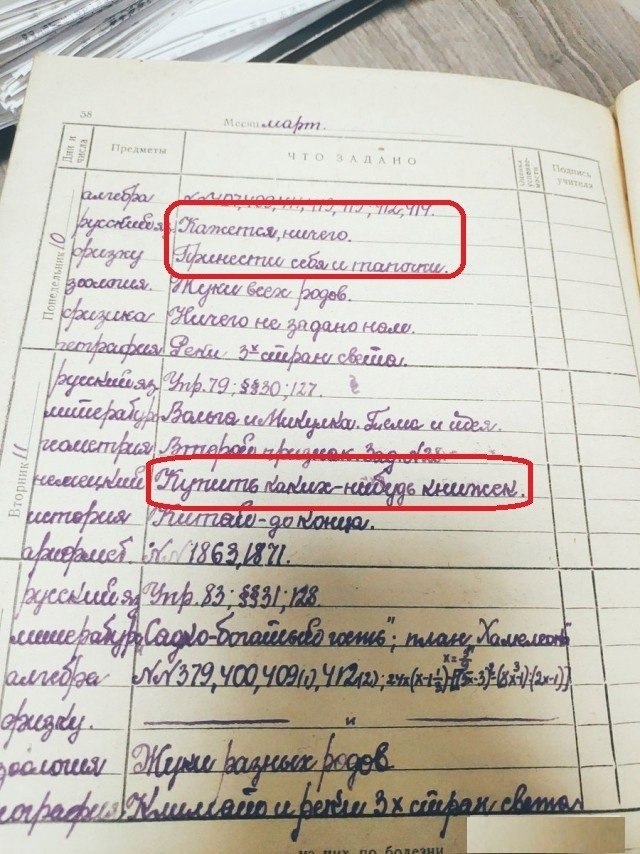 58
Месяц март.
Дни и числа Предметы ЧТО ЗАДАНО Оценка успеваемости Подпись учителя
Понедельник 10
алгебра №№ 407, 409, 411, 413, 415, 412, 414.
русский яз Кажется, ничего.
физку Принести себя и тапочки.
зоология. Жуки всех родов.
физика Ничего не задано нам.
география Реки 3х стран света.
Вторник 11
русский яз Упр. 79; §§30; 127.
литература Вольга и Микулка. Тема и идея.
геометрия Второй признак. Зад. №28
немецкий Купить каких-нибудь книжек.
история Китай - до конца.
арифмет. №№1863, 1871.
русский яз Упр. 83; §§31; 128.
литература "Садко-богатый гость"; план "Хамелеон"
алгебра №№379, 400, 409(1), 412(2);
физку. и
зоология Жуки разных родов
география Климат и реки 3х стран света
из них по болезни